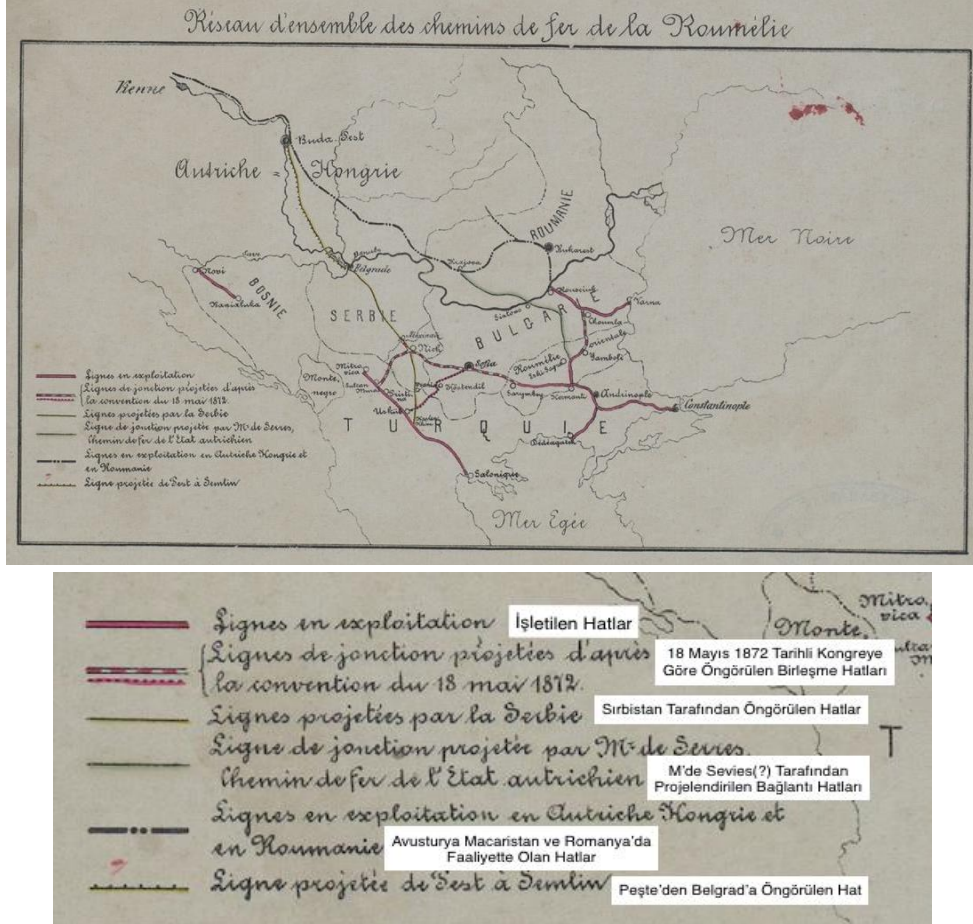 Réseau d'ensemble des chemins de fer de la Roumélie
Vienne
Buda Pest
Autriche = Hongrie
ROUMANIE
Bukarest
Mer Noire
Belgrade
Novi
BOSNIE
SERBIE
BULGARIE
Varna
Choumla
Nisch
Sofia
Roumélie orientale
Yamboli
Mitrovica
Monte, negro
Uskub
Andrinople
Constantinople
TURQUIE
Salonique
Mer Egée
Lignes en exploitation
Lignes de jonction projetées d'après
la convention du 18 mai 1872.
Lignes projetées par la Serbie
Ligne de jonction projetée par Mr de Serres,
Chemin de fer de l'Etat autrichien
Lignes en exploitation en Autriche Hongrie et
en Roumanie
Ligne projetée de Pest à Semlin
Lignes en exploitation
İşletilen Hatlar
Lignes de jonction projetées d'après
la convention du 18 mai 1872.
18 Mayıs 1872 Tarihli Kongreye
Göre Öngörülen Birleşme Hatları
Lignes projetées par la Serbie
Sırbistan Tarafından Öngörülen Hatlar
Ligne de jonction projetée par Mr de Serres,
Chemin de fer de l'Etat autrichien
M'de Sevies(?) Tarafından
Projelendirilen Bağlantı Hatları
Lignes en exploitation en Autriche Hongrie et
en Roumanie
Avusturya Macaristan ve Romanya'da
Faaliyette Olan Hatlar
Ligne projetée de Pest à Semlin
Peşte'den Belgrad'a Öngörülen Hat
Mitro,
vica
Monte,
T